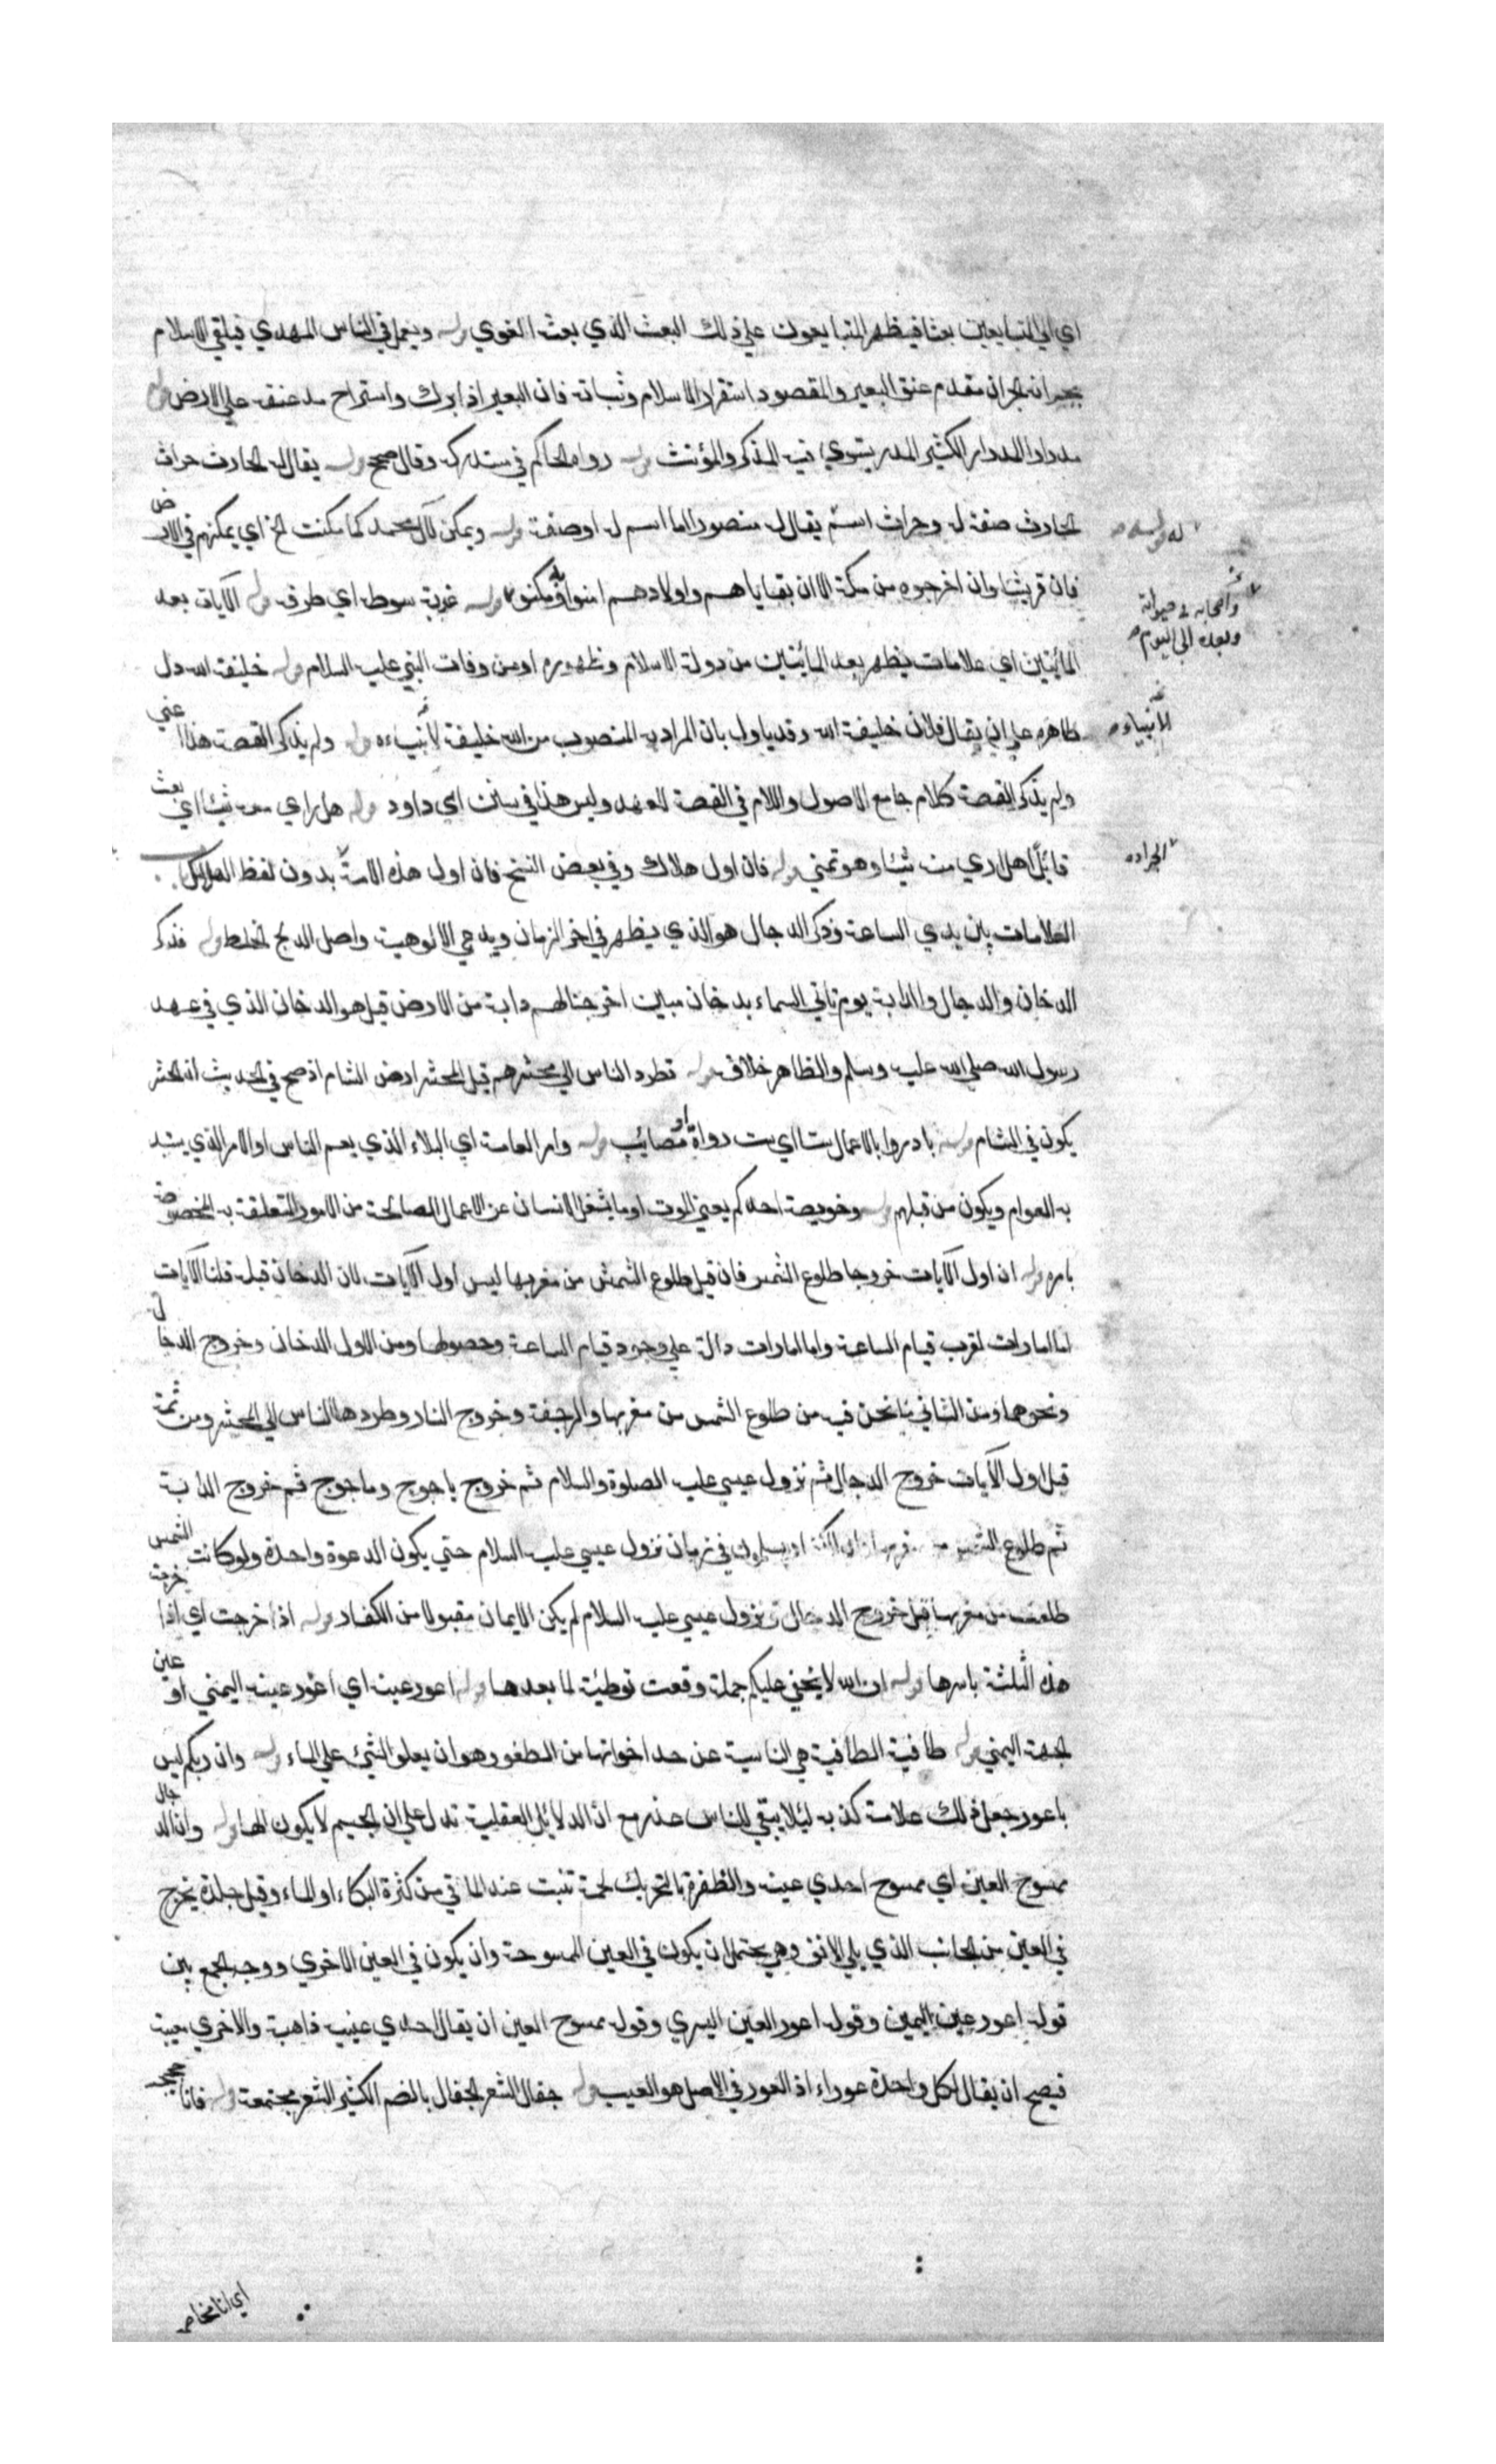 اي الي المتبايعين بعثا فيظهر المتبايعون علي ذلك البعث الذي بعث الغوي قوله ويعمل في الناس المهدي فيلقي الاسلام
بجرانه الجران مقدم عنق البعير والمقصود استقرار الاسلام وثباته فان البعير اذا برك واستراح مد عنقه علي الارض قوله
مدرارا المدرار الكثير المدر يستوي فيه المذكر والمؤنث قوله رواه الحاكم في مستدركه وقال صحيح قوله يقال له الحارث حراث
الحارث صفة له وحراث اسم يقال له منصور اما اسم له اوصفة قوله ويمكن لآل محمد كما مكنت الخ اي يمكنهم في الارض
فان قريشا وان اخرجوه من مكة الا ان بقاياهم واولادهم امنوا ومكنوه قوله غربة سوط اي طرف قوله الآيات بعد
المأئتين اي علامات يظهر بعد المائتين من دولة الاسلام وظهوره اومن وفات النبي عليه السلام قوله خليفة الله دل
ظاهره علي ان يقال فلان خليفة الله وقد ياول بان المراد به المنصوب من الله خليفة لأنبياءه قوله ولم يذكر القصة هذا اعني
ولم يذكر القصة كلام جامع الاصول واللام في القصة للعهد وليس هذا في سنن ابي داود قوله هل راي منه شيئا اي بعث
قائلا هل راي منه شيئا وهو تمني قوله فان اول هلاك وفي بعض النسخ فان اول هذه الامة بدون لفظ الهلاك
العلامات بين يدي الساعة وذكر الدجال هو الذي يظهر في اخر الزمان ويدعي الالوهية واصل الدجل الخلط قوله فذكر
الدخان والدجال والدابة يوم تاتي السماء بدخان مبين اخرجنا لهم دابة من الارض قيل هو الدخان الذي في عهد
رسول الله صلي الله عليه وسلم والظاهر خلافه قوله تطرد الناس الي محشرهم قيل المحشر ارض الشام اذ صح في الحديث ان الحشر
يكون في الشام قوله بادروا بالاعمال ستا اي ست دواة او مصائب قوله وامر العامة اي البلاء الذي يعم الناس او الامر الذي يستبد
به العوام ويكون من قبلهم قوله وخويصة احدكم يعني الموت او ما يشغل الانسان عن الاعمال الصالحة من الامور المتعلقة به المخصوصة
بامره قوله ان اول الآيات خروجا طلوع الشمس فان قيل طلوع الشمس من مغربها ليس اول الآيات لان الدخان قبله قلنا الآيات
اما امارات لقرب قيام الساعة واما امارات دالة علي وجود قيام الساعة وحصولها ومن الاول الدخان وخروج الدجال
ونحوهما ومن الثاني ما نحن فيه من طلوع الشمس من مغربها والرجفة وخروج النار وطردها الناس الي المحشر ومن ثمة
قيل اول الآيات خروج الدجال ثم نزول عيسي عليه الصلوة والسلام ثم خروج ياجوج وماجوج ثم خروج الدابة
ثم طلوع الشمس من مغربها في زمان نزول عيسي عليه السلام حتي يكون الدعوة واحدة ولو كانت الشمس
طلعت من مغربها قبل خروج الدجال ونزول عيسي عليه السلام لم يكن الايمان مقبولا من الكفار قوله اذا خرجت اي اذا خرجت
هذه الثلثة باسرها قوله ان الله لا يخفي عليكم جملة وقعت توطئة لما بعدها قوله اعور عينه اي اعور عينه اليمني او عين
الجهة اليمني قوله طافية الطافية هي الناتية عن حد اخواتها من الطفو وهو ان يعلو الشيئ علي الماء قوله وان ربكم ليس
باعور جعل ذلك علامة كذبه لئلا يبقي للناس عذر مع ان الدلائل العقلية تدل علي ان الجسم لا يكون الها قوله وان الدجال
ممسوح العين اي ممسوح احدي عينيه والظفرة بالتحريك لحمة تنبت عند الماقي من كثرة البكاء او الماء وقيل جلدة يخرج
في العين من الجانب الذي يلي الانف وهي يحتمل ان يكون في العين الممسوحة وان يكون في العين الاخري ووجه الجمع بين
قوله اعور عين اليمين وقوله اعور العين اليسري وقوله ممسوح العين ان يقال احدي عينيه ذاهبة والاخري معيبة
فيصح ان يقال لكل واحدة عوراء اذ العور في الاصل هو العيب قوله جفال الشعر الجفال بالضم الكثير الشعر مجتمعة قوله فانا حجيجه
واصحابه في حيوته
وبعده الي اليوم
الانبياء
الجراده
اي انا مخاصم